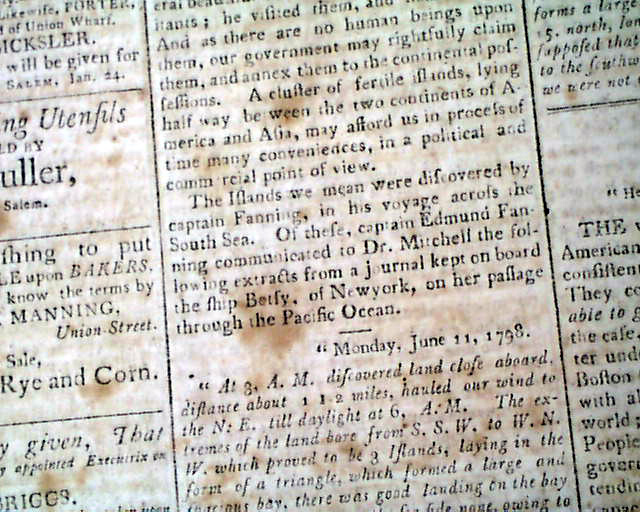 Likewise, PORTER,
of Union Wharf.
ICKSLER.
will be given for
SALEM, Jan. 24.
ng Utensils
LD BY
uller,
Salem.
thing to put
LE upon BAKERS.
know the terms by
MANNING,
Union-Street.
Sale,
Rye and Corn.
y given, That
appointed Executrix on
BRIGGS.
itants; he visited them, and
And as there are no human beings upon
them, our government may rightfully claim
them, and annex them to the continental pos-
sessions. A cluster of fertile islands, lying
half way be ween the two continents of A-
merica and Asia, may afford us in process of
time many conveniences, in a political and
comm rcial point of view.
The Islands we mean were discovered by
captain Fanning, in his voyage across the
South Sea. Of these, captain Edmund Fan-
ning communicated to Dr. Mitchell the fol-
lowing extracts from a journal kept on board
the ship Betsy, of Newyork, on her passage
through the Pacific Ocean.
"Monday, June 11, 1798.
"At 3, A. M. discovered land close aboard,
distance about 1 1-2 miles, hauled our wind to
the N. E. till daylight at 6, A. M. The ex-
tremes of the land bore from S. S. W. to W. N.
W. which proved to be 3 Islands, laying in the
form of a triangle, which formed a large and
spacious bay, there was good landing on the bay
side none, owing to
forms a large
5. north, lon
supposed that
to the southw
we were not
"H
THE
American
consisten
They co
able to g
the cafe.
ter und
Boston
with al
world
People
govern
tendin